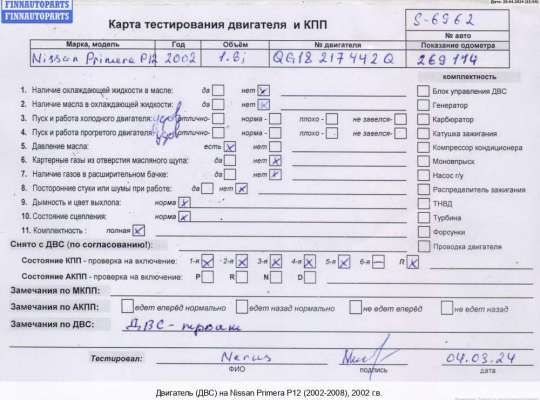 FINNAUTOPARTS
FINNAUTOPARTS
FINNAUTOPARTS
Карта тестирования двигателя и КПП
S-6962
№ авто
Марка, модель Год Объём № двигателя Показание одометра
Nissan Primera P12 2002 1.8i QG18 217442Q 269114
комплектность
1. Наличие охлаждающей жидкости в масле: да нет x
Блок управления ДВС
2. Наличие масла в охлаждающей жидкости: да нет x
Генератор
3. Пуск и работа холодного двигателя: отлично- норма - плохо - не завелся-
Карбюратор
4. Пуск и работа прогретого двигателя: отлично- норма - плохо - не завелся-
Катушка зажигания
5. Давление масла: есть x нет
Компрессор кондиционера
6. Картерные газы из отверстия масляного щупа: да нет x
Моновпрыск
7. Наличие газов в расширительном бачке: да нет x
Насос г/у
8. Посторонние стуки или шумы при работе: да нет x
Распределитель зажигания
9. Дымность и цвет выхлопа норма x
ТНВД
10. Состояние сцепления: норма x
Турбина
11. Комплектность : полная x
Форсунки
Снято с ДВС (по согласованию!):
Проводка двигателя
Состояние КПП - проверка на включение: 1-я x 2-я x 3-я x 4-я x 5-я x 6-я — R x
Состояние АКПП - проверка на включение: P R N D
Замечания по МКПП:
Замечания по АКПП: едет вперёд нормально едет назад нормально не едет вперёд не едет назад
Замечания по ДВС: ДВС-тросик
Тестировал: Nerus 04.03.24
ФИО подпись дата
Двигатель (ДВС) на Nissan Primera P12 (2002-2008), 2002 г.в.